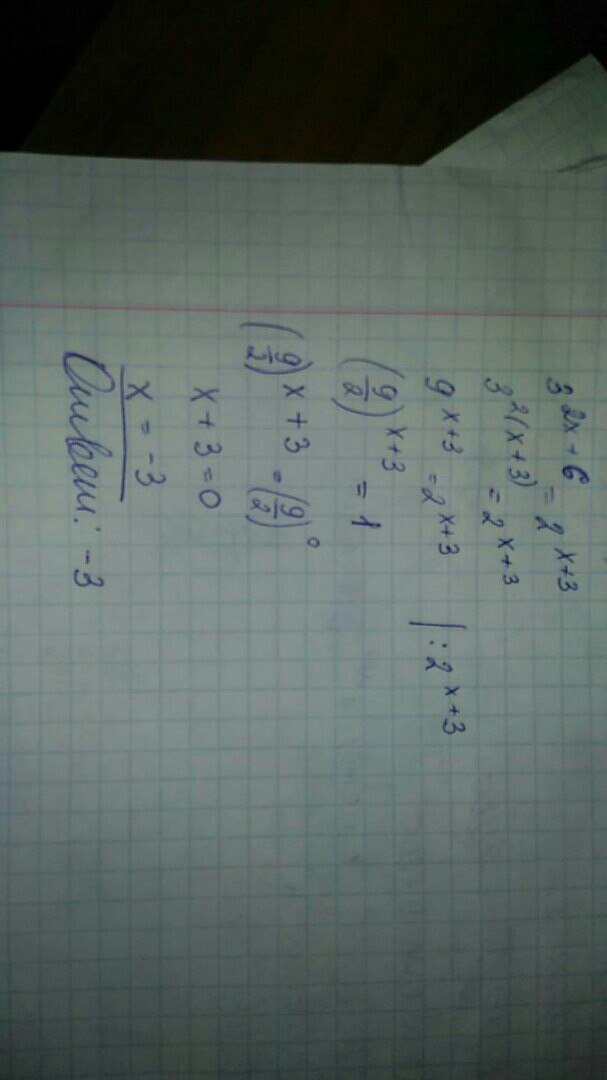 3^{2x+6} = 2^{x+3}
3^{2(x+3)} = 2^{x+3}
9^{x+3} = 2^{x+3} |: 2^{x+3}
(9/2)^{x+3} = 1
(9/2)^{x+3} = (9/2)^0
x + 3 = 0
x = -3
Ответ: -3